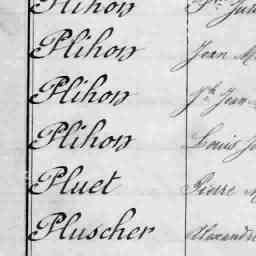 Plihon
Plihon Jean M
Plihon Jh Jean
Plihon Louis J
Pluet Pierre M
Pluscher Alexandre